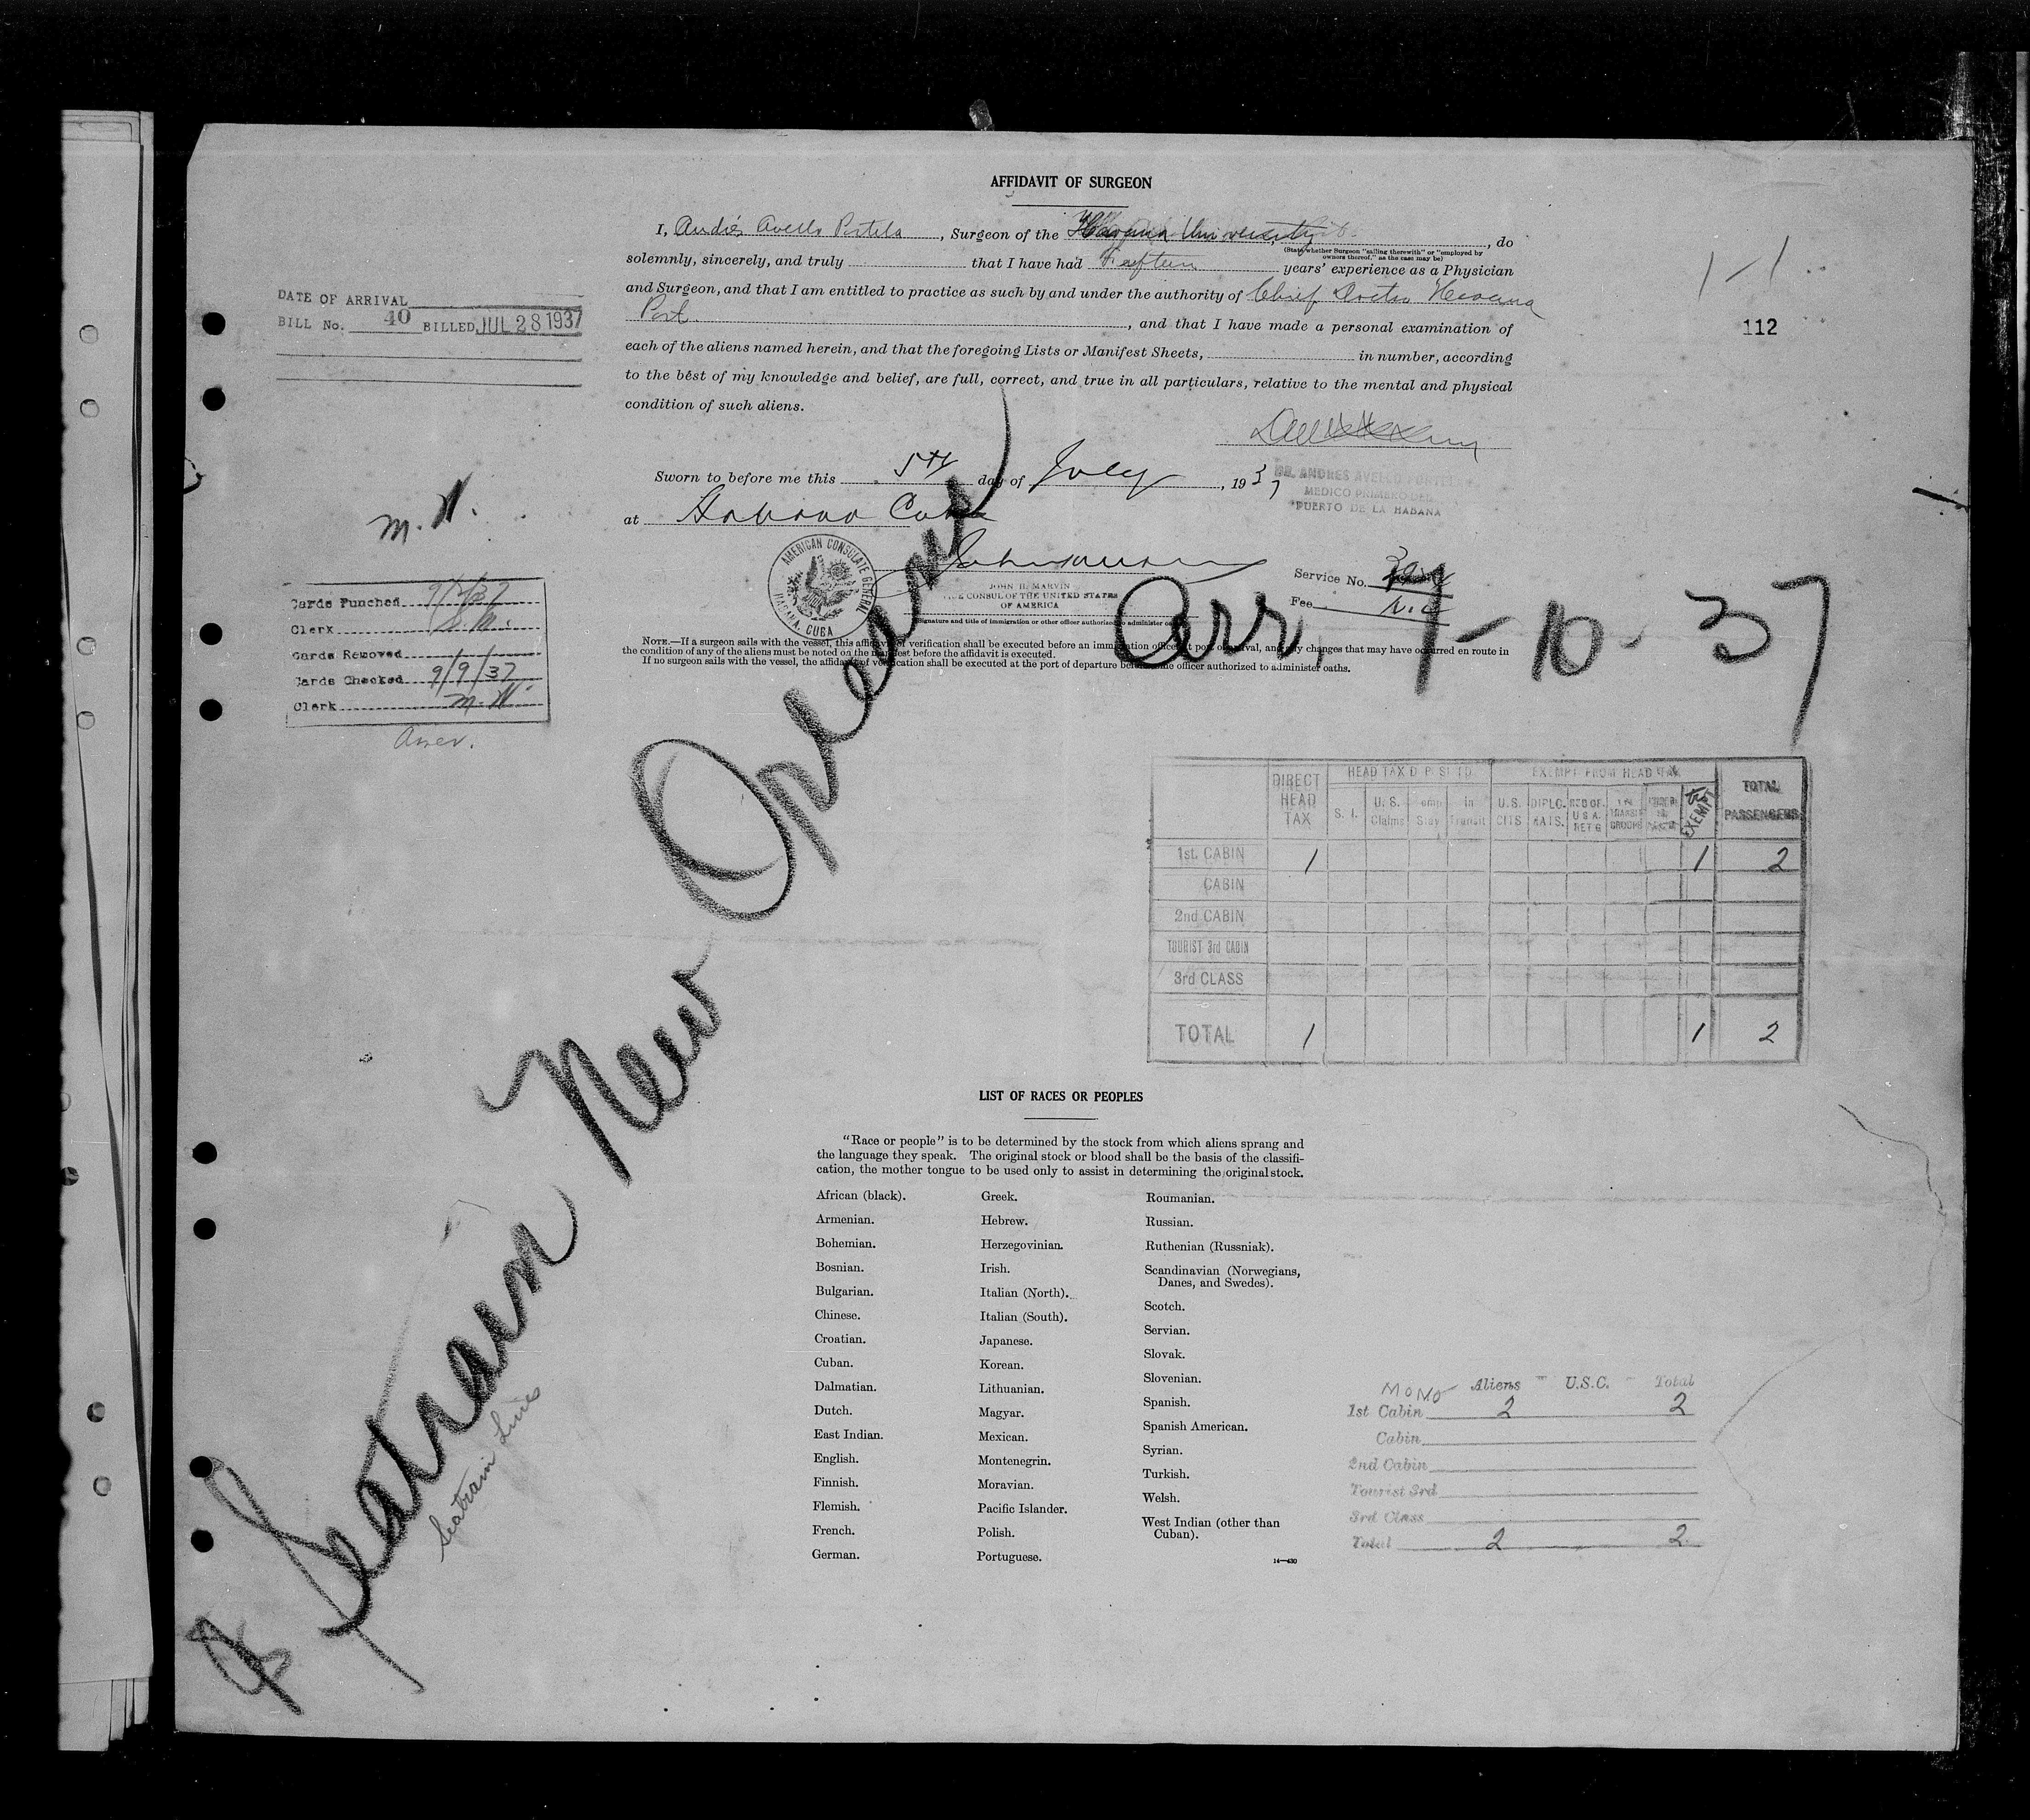 AFFIDAVIT OF SURGEON
I, Andrés Avello Portela, Surgeon of the Havana University, do
(State whether Surgeon "sailing therewith" or "employed by
owners thereof," as the case may be)
solemnly, sincerely, and truly that I have had Fifteen years' experience as a Physician
and Surgeon, and that I am entitled to practice as such by and under the authority of Chief Doctor Havana
Port, and that I have made a personal examination of
each of the aliens named herein, and that the foregoing Lists or Manifest Sheets, in number, according
to the best of my knowledge and belief, are full, correct, and true in all particulars, relative to the mental and physical
condition of such aliens.
DATE OF ARRIVAL
BILL No. 40 BILLED JUL 28 1937
1-1
112
Sworn to before me this 5th day of July, 1937
at Habana Cuba
DR. ANDRES AVELLO
MEDICO PRIMERO DEL
PUERTO DE LA HABANA
AMERICAN CONSULATE GENERAL
HABANA, CUBA
JOHN H. MARVIN
VICE CONSUL OF THE UNITED STATES
OF AMERICA
Signature and title of immigration or other officer authorized to administer
Service No.
Fee
NOTE.—If a surgeon sails with the vessel, this affidavit of verification shall be executed before an immigration officer at port of arrival, and any changes that may have occurred en route in
the condition of any of the aliens must be noted on the manifest before the affidavit is executed.
If no surgeon sails with the vessel, the affidavit of verification shall be executed at the port of departure before the officer authorized to administer oaths.
Arr. 7-10-37
M. W.
Cards Punched
Clerk
Cards Removed
Cards Checked 9/9/37
Clerk M. W.
Amer.
New Orleans
Seatrain
Seatrain Lines
DIRECT HEAD TAX
HEAD TAX DEPOSITED
EXEMPT FROM HEAD TAX
TOTAL PASSENGERS
S. I. U. S. Claims Temp Stay in Transit U.S. CITS DIPLOMATS. RES OF. U S A. RET'G IN TRANSIT GROUPS EXEMPT
1st. CABIN 1 1 2
CABIN
2nd CABIN
TOURIST 3rd CABIN
3rd CLASS
TOTAL 1 1 2
LIST OF RACES OR PEOPLES
"Race or people" is to be determined by the stock from which aliens sprang and
the language they speak. The original stock or blood shall be the basis of the classifi-
cation, the mother tongue to be used only to assist in determining the original stock.
African (black).
Armenian.
Bohemian.
Bosnian.
Bulgarian.
Chinese.
Croatian.
Cuban.
Dalmatian.
Dutch.
East Indian.
English.
Finnish.
Flemish.
French.
German.
Greek.
Hebrew.
Herzegovinian.
Irish.
Italian (North).
Italian (South).
Japanese.
Korean.
Lithuanian.
Magyar.
Mexican.
Montenegrin.
Moravian.
Pacific Islander.
Polish.
Portuguese.
Roumanian.
Russian.
Ruthenian (Russniak).
Scandinavian (Norwegians,
Danes, and Swedes).
Scotch.
Servian.
Slovak.
Slovenian.
Spanish.
Spanish American.
Syrian.
Turkish.
Welsh.
West Indian (other than
Cuban).
14—430
MONO Aliens U.S.C. Total
1st Cabin 2 2
Cabin
2nd Cabin
Tourist 3rd
3rd Class
Total 2 2